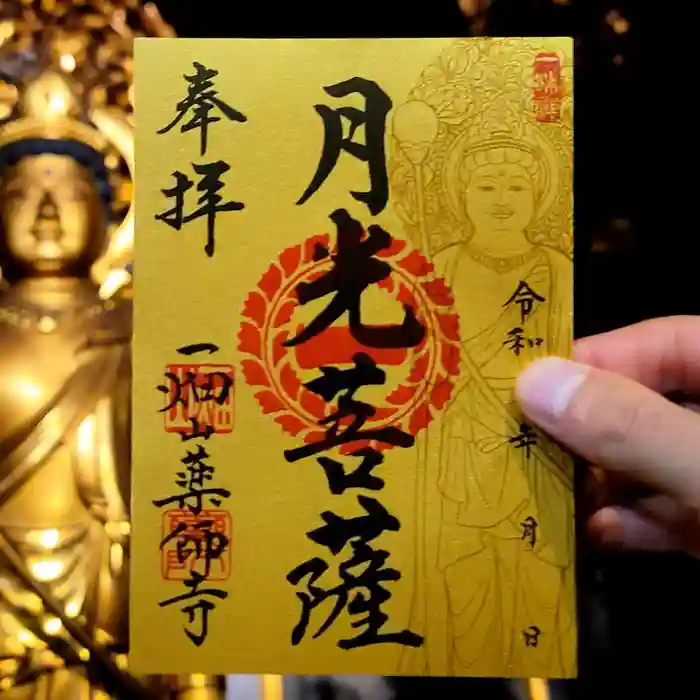 令和 年 月 日
月光菩薩
奉拝
一畑山薬師寺